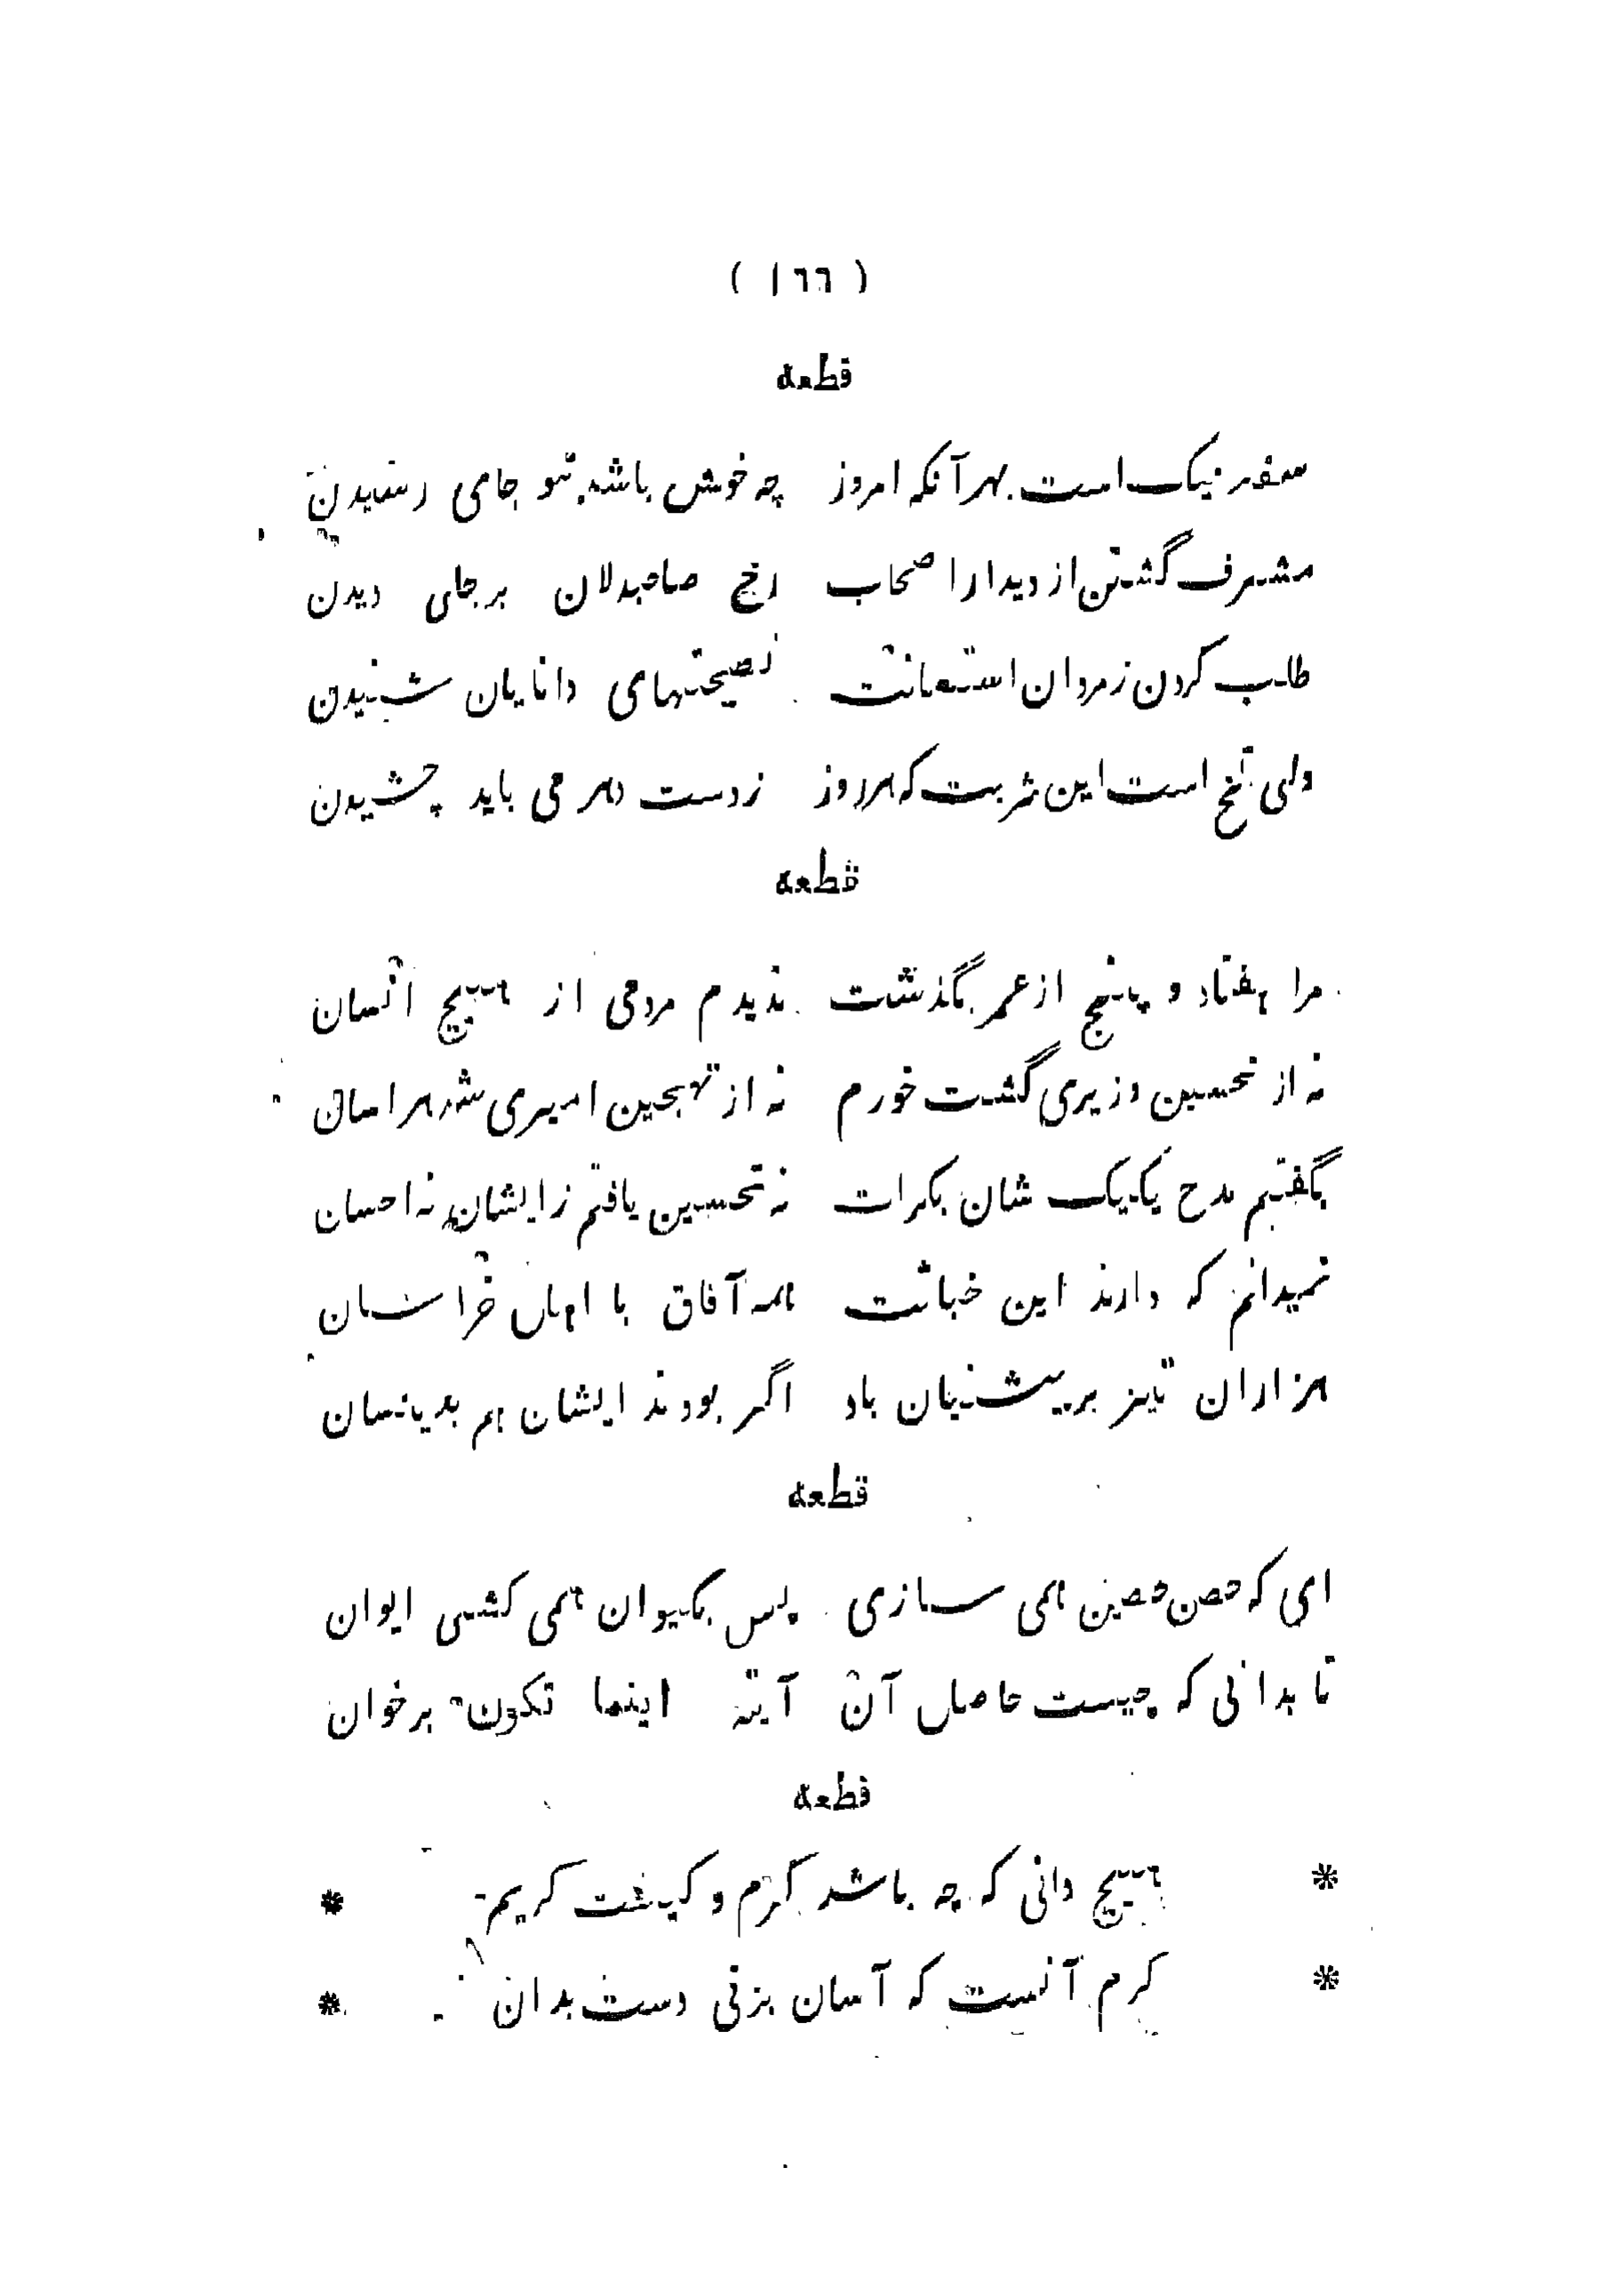 ( ١٦٦ )
قطعه
سفر نیک است بهر آنکه امروز چه خوش باشد بنو جای رسیدن
مشرف گشتن از دیدار اصحاب رخ صاحبدلان بر جای دیدن
طلب کردن ز مردان استعانت نصیحتهای دانایان شنیدن
ولی تلخ است این شربت که هر روز ز دست دهر می باید چشیدن
قطعه
مرا هفتاد و پنج از عمر بگذشت ندیدم مردمی از هیچ انسان
نه از تحسین وزیری گشت خورم نه از تهجین امیری شد هراسان
بگفتم مدح یک یک شان بکرات نه تحسین یافتم زایشان نه احسان
نمیدانم که دارند این خباثت همه آفاق با اهل خراسان
هزاران تیز بر پیشینیان باد اگر بودند ایشان هم بدینسان
قطعه
ای که حصن حصین همی سازی پس بکیوان همی کشی ایوان
تا بدانی که چیست حاصل آن آیتهٔ اینما تکون برخوان
قطعه
* هیچ دانی که چه باشد کرم و کیست کریم *
* کرم آنست که آسان بزنی دست بدان *